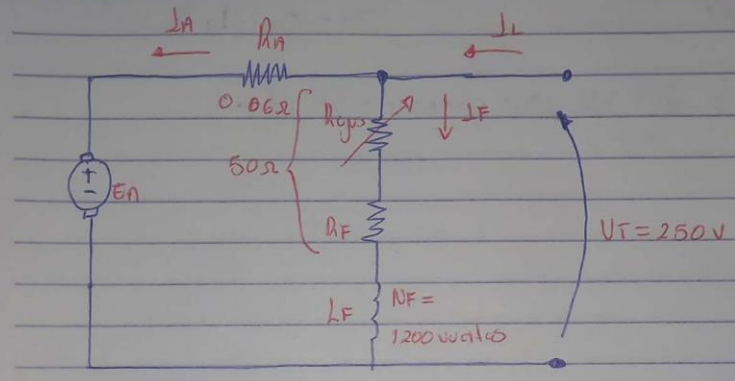 IA
RA
IL
0.06Ω
Rajus
IF
50Ω
+
-
EA
RF
VT = 250 V
LF
NF =
1200 vueltas